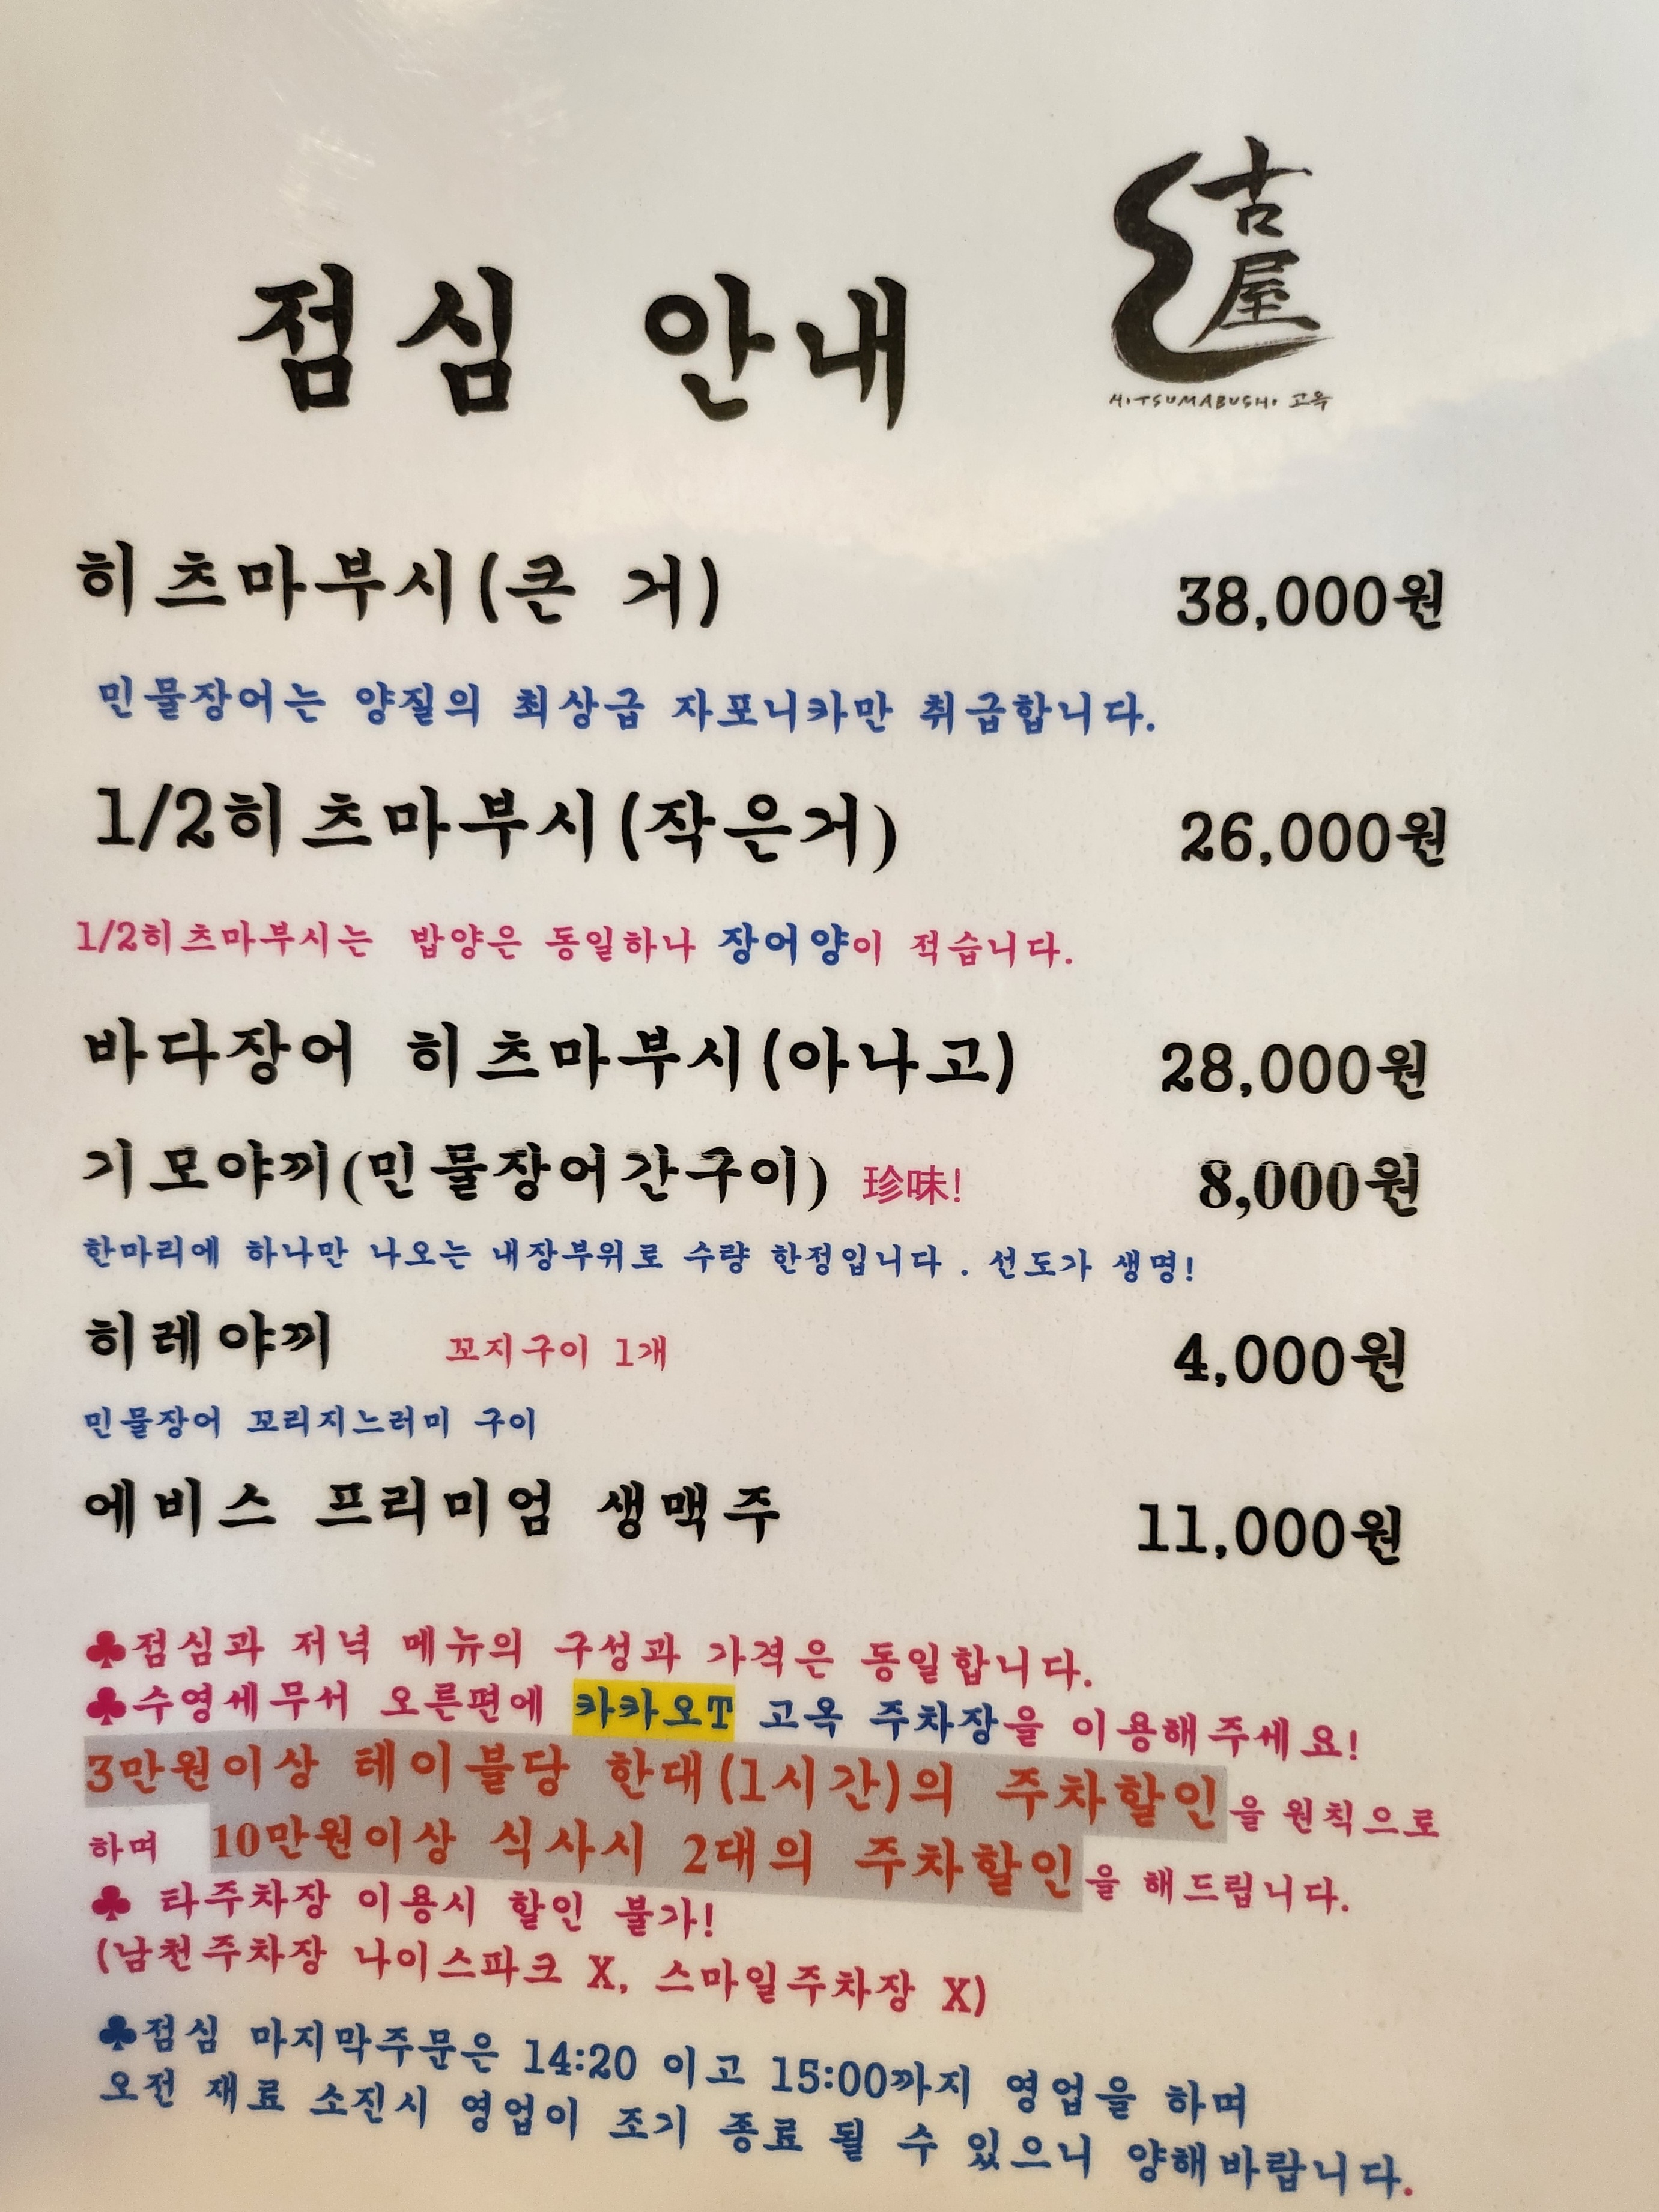 古屋
HITSUMABUSHI 고옥
점심 안내
히츠마부시(큰 거) 38,000원
민물장어는 양질의 최상급 자포니카만 취급합니다.
1/2히츠마부시(작은거) 26,000원
1/2히츠마부시는 밥양은 동일하나 장어양이 적습니다.
바다장어 히츠마부시(아나고) 28,000원
기모야끼(민물장어간구이) 珍味! 8,000원
한마리에 하나만 나오는 내장부위로 수량 한정입니다 . 선도가 생명!
히레야끼 꼬지구이 1개 4,000원
민물장어 꼬리지느러미 구이
에비스 프리미엄 생맥주 11,000원
♣점심과 저녁 메뉴의 구성과 가격은 동일합니다.
♣수영세무서 오른편에 카카오T 고옥 주차장을 이용해주세요!
3만원이상 테이블당 한대(1시간)의 주차할인을 원칙으로
하며 10만원이상 식사시 2대의 주차할인을 해드립니다.
♣ 타주차장 이용시 할인 불가!
(남천주차장 나이스파크 X, 스마일주차장 X)
♣점심 마지막주문은 14:20 이고 15:00까지 영업을 하며
오전 재료 소진시 영업이 조기 종료 될 수 있으니 양해바랍니다.